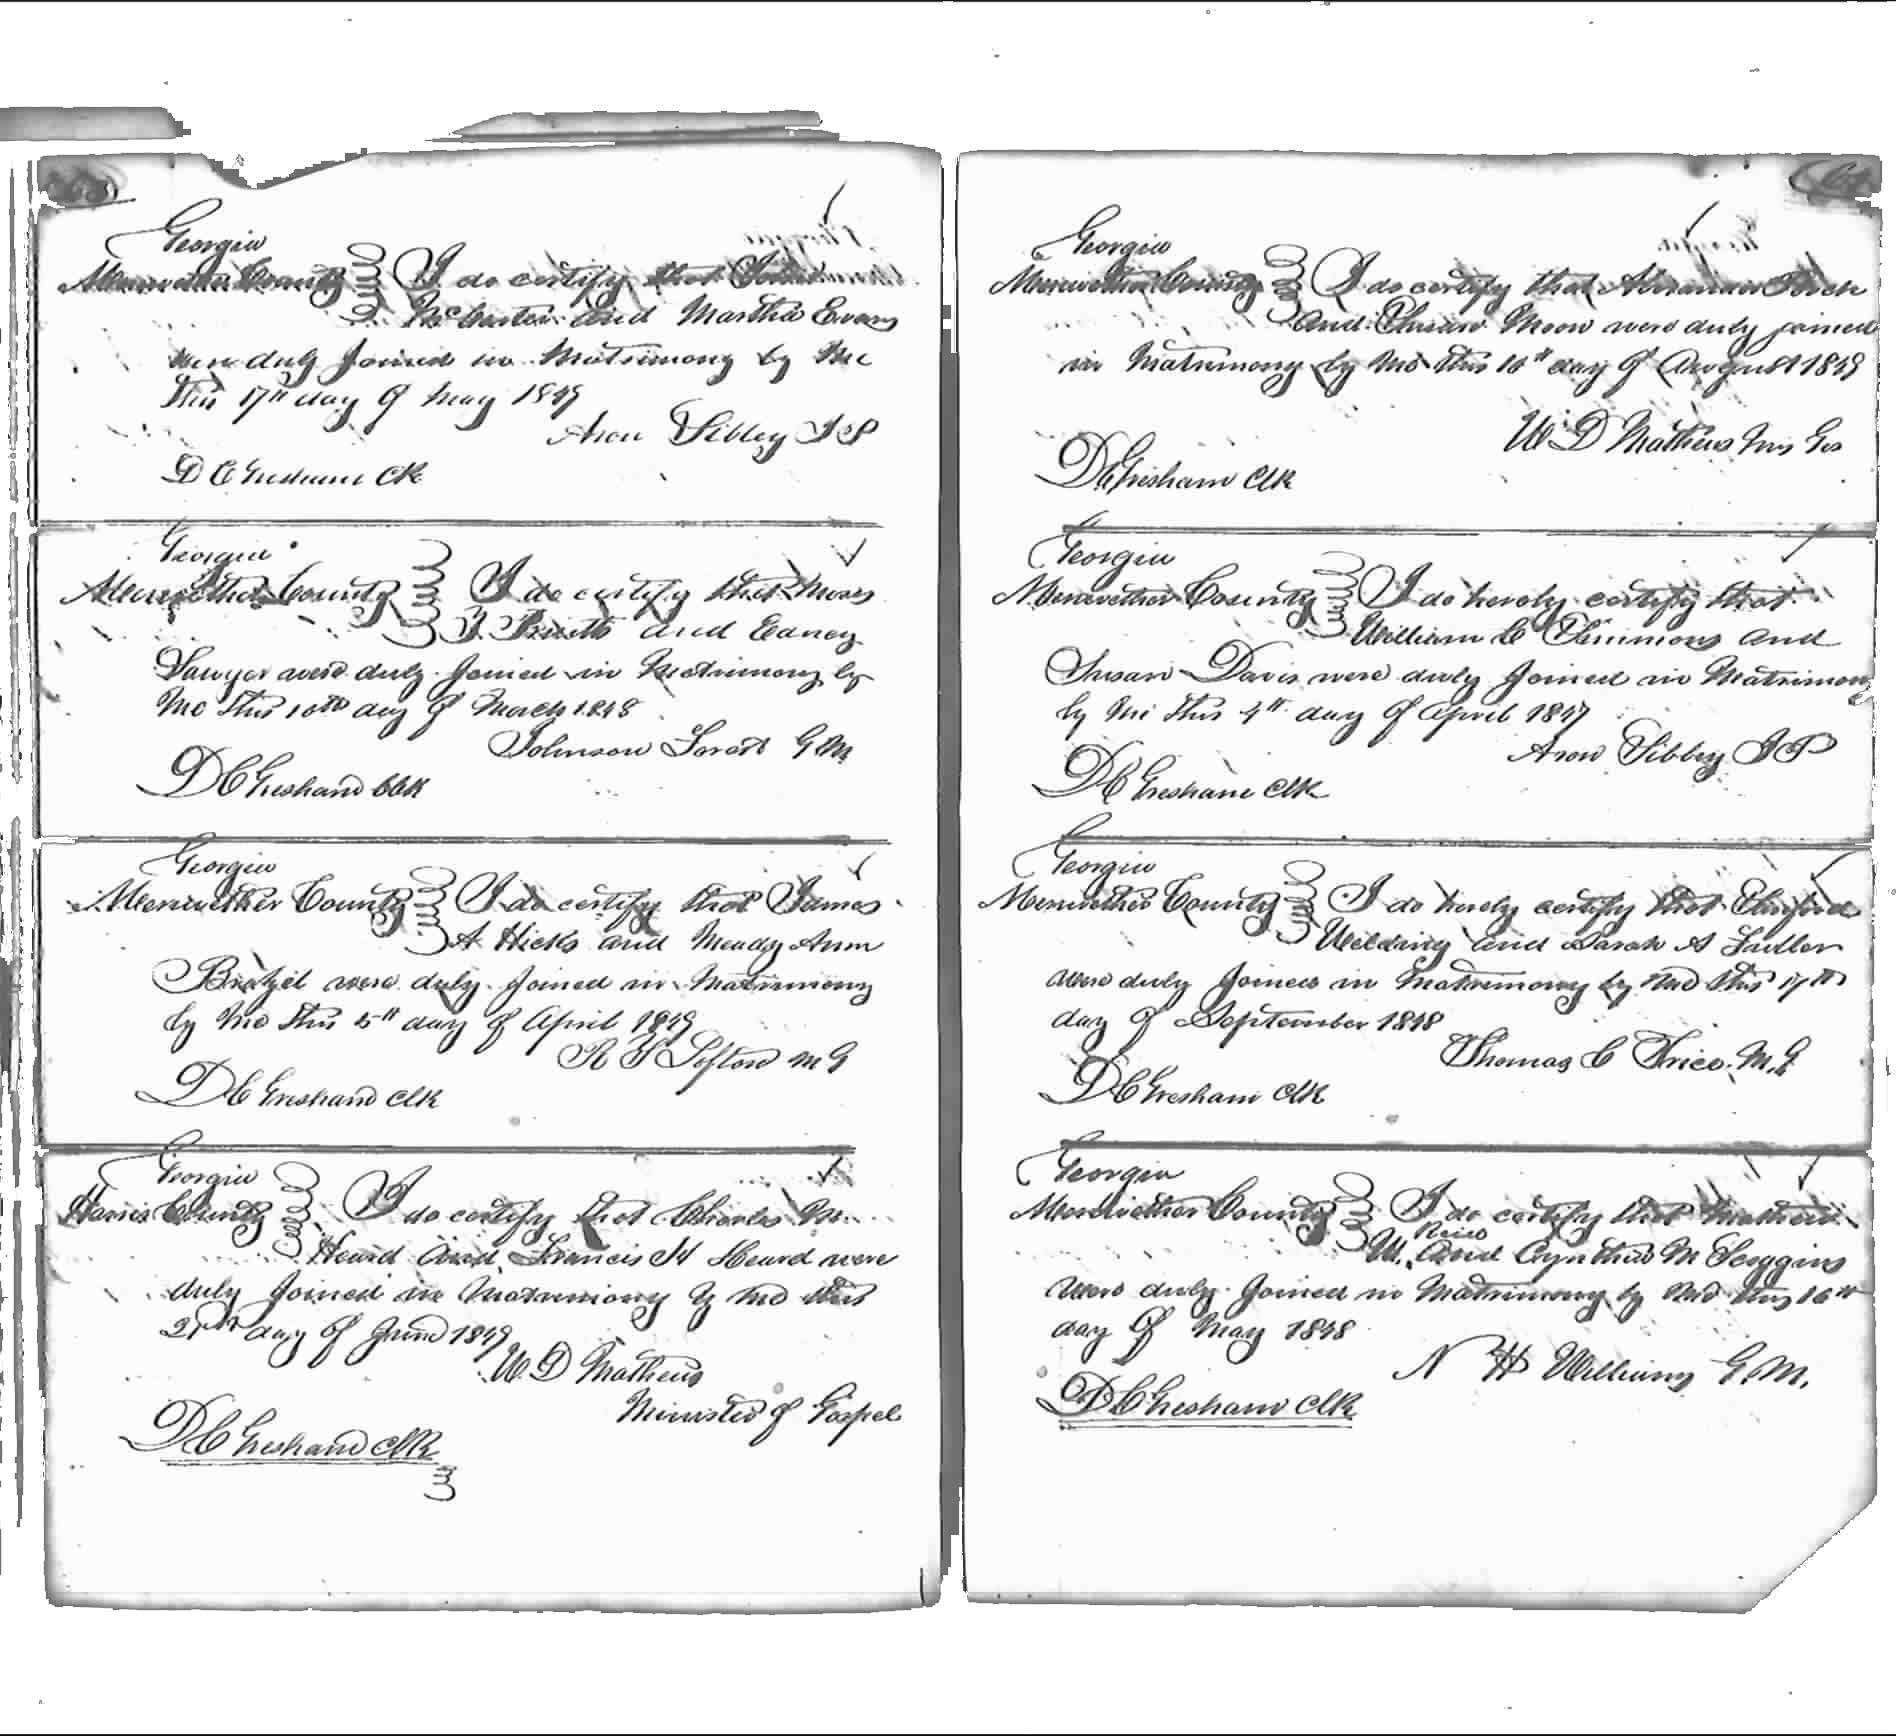 63
Georgia
Meriwether County I do certify that John
McCarter and Martha Evans
were duly Joined in Matrimony by Me
this 17th day of May 1849
Aron Sibley J P
D C Gresham Clk
Georgia
Meriwether County I do certify that Moses
and Edney
Sawyer were duly Joined in Matrimony by
Me this 10th day of March 1848
Johnson G M
D C Gresham Clk
Georgia
Meriwether County I do certify that James
A Hicks and Ann
were duly Joined in Matrimony
by Me this 5th day of April 1849
R F Lofton M G
D C Gresham Clk
Georgia
Harris County I do certify that Charles M
Heard and Francis H Heard were
duly Joined in Matrimony by Me this
day of June 1849
W. D Matheus
Minister of Gospel
D C Gresham Clk
Georgia
Meriwether County I do certify that
and Moon were duly joined
in Matrimony by Me this 16th day of August 1849
W. D Matheus
D C Gresham Clk
Georgia
Meriwether County I do hereby certify that
William C Simmons and
Susan Davis were duly Joined in Matrimony
by Me this 4th day of April 1847
Aron Sibley J P
D C Gresham Clk
Georgia
Meriwether County I do hereby certify that
and Sarah A
were duly Joined in Matrimony by Me this 17th
day of September 1848
Thomas C M. G
D C Gresham Clk
Georgia
Meriwether County I do certify that Mathew
Reid
W. and Cynthia M Scoggins
were duly Joined in Matrimony by Me this 16th
day of May 1848
N H Williams G. M.
D C Gresham Clk